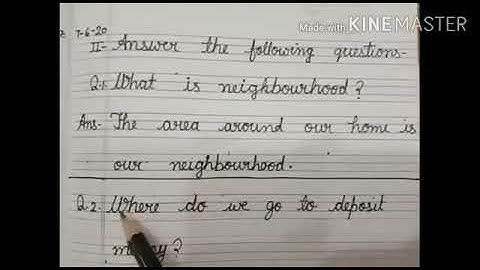 Made with KINEMASTER
7-6-20
II- Answer the following questions-
Q.1. What is neighbourhood?
Ans- The area around our home is
our neighbourhood.
Q.2. Where do we go to deposit
money?